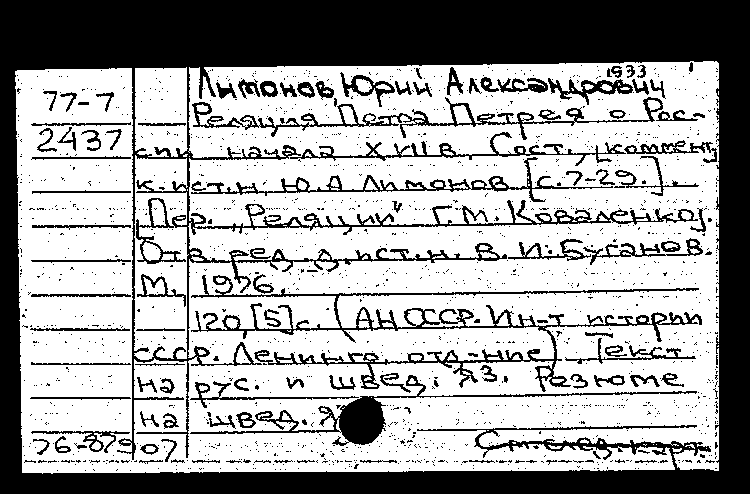 1933
77-7 Лимонов, Юрий Александрович
Реляция Петра Петрея о Рос-
2437 сии начала XVII в. Сост., [коммент.
к.ист.н. Ю.А. Лимонов [с. 7-29.].
Пер. „Реляции" Г.М. Коваленко].
Отв. ред. д.ист.н. В. И. Буганов.
М., 1976.
120,[5]с. (АН СССР. Ин-т истории
СССР. Ленингр. отд-ние). Текст
на рус. и швед. яз. Резюме
на швед. я
76-87907 См. след. карт.